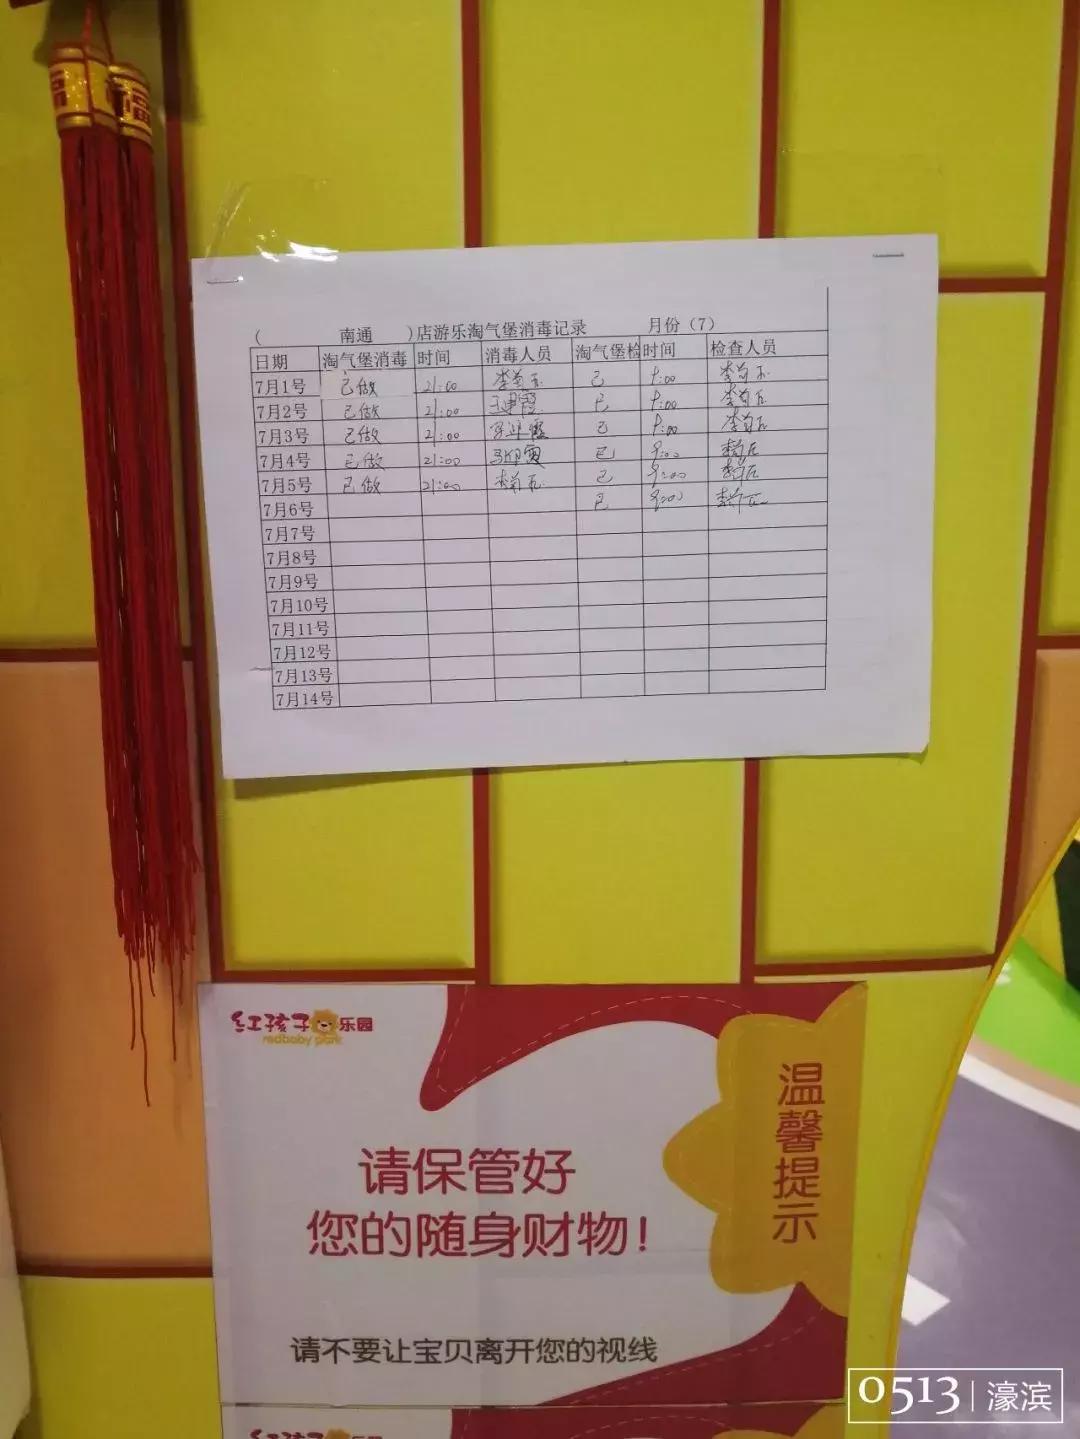 福
(南通)店游乐淘气堡消毒记录 月份(7)
日期 淘气堡消毒 时间 消毒人员 淘气堡检 时间 检查人员
7月1号 已做 21:00 已 9:00
7月2号 已做 21:00 已 9:00
7月3号 已做 21:00 已 9:00
7月4号 已做 21:00 已 9:00
7月5号 已做 21:00 已 9:00
7月6号 已 9:00
7月7号
7月8号
7月9号
7月10号
7月11号
7月12号
7月13号
7月14号
红孩子乐园
redbaby park
温馨提示
请保管好
您的随身财物!
请不要让宝贝离开您的视线
红孩子乐园
0513 濠滨